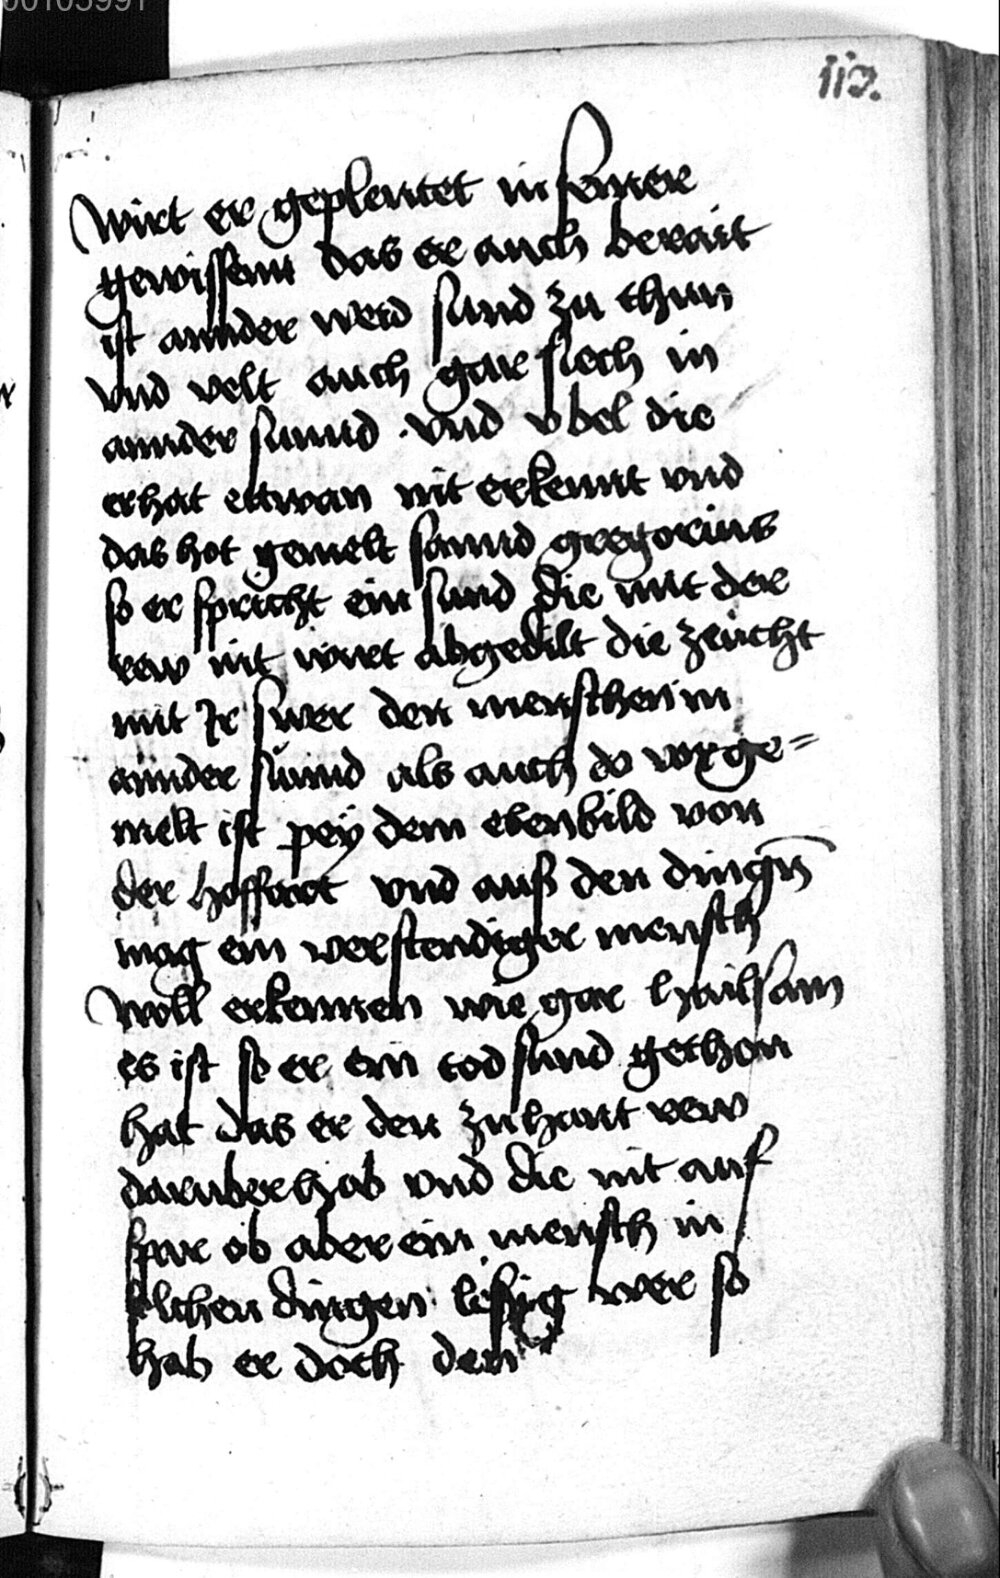 00103991
117.
wirt er geplentet in seiner
gewissenn das er auch berait
ist annder werd sund zu thun
vnd velt auch gar flech in
annder sunnd . vnd vbel die
er hat ettwan nit erkennt vnd
das hot gemelt sannd gregorius
so er spricht ein sund die mit der
rew nit wirt abgedilt die zeücht
mit Ir swer den menschen in
annder sünnd als auch do vorge=
melt ist pey dem ebenbild von
der hoffart vnd auß den dingn̄
mag ein verstendiger mensch
woll erkennen wie gar hailsam
es ist so er ein tod sund gethon
hat das er den zuhant rew
daruber hab vnd die nit auf
spar ob aber ein mensch in
solchen dingen leßig wer so
hab er doch den